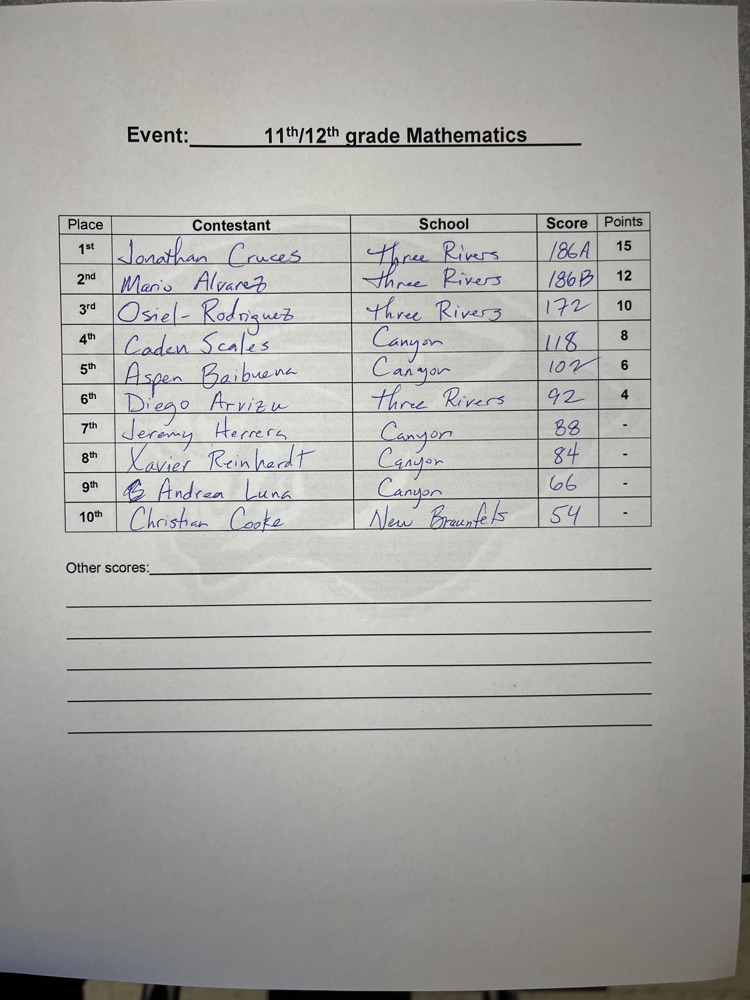 Event: 11th/12th grade Mathematics
Place Contestant School Score Points
1st Jonathan Cruces Three Rivers 186A 15
2nd Mario Alvarez Three Rivers 186B 12
3rd Osiel-Rodriguez Three Rivers 172 10
4th Caden Scales Canyon 118 8
5th Aspen Baibuena Canyon 102 6
6th Diego Arvizu Three Rivers 92 4
7th Jeremy Herrera Canyon 88 -
8th Xavier Reinhardt Canyon 84 -
9th Andrea Luna Canyon 66 -
10th Christian Cooke New Braunfels 54 -
Other scores: